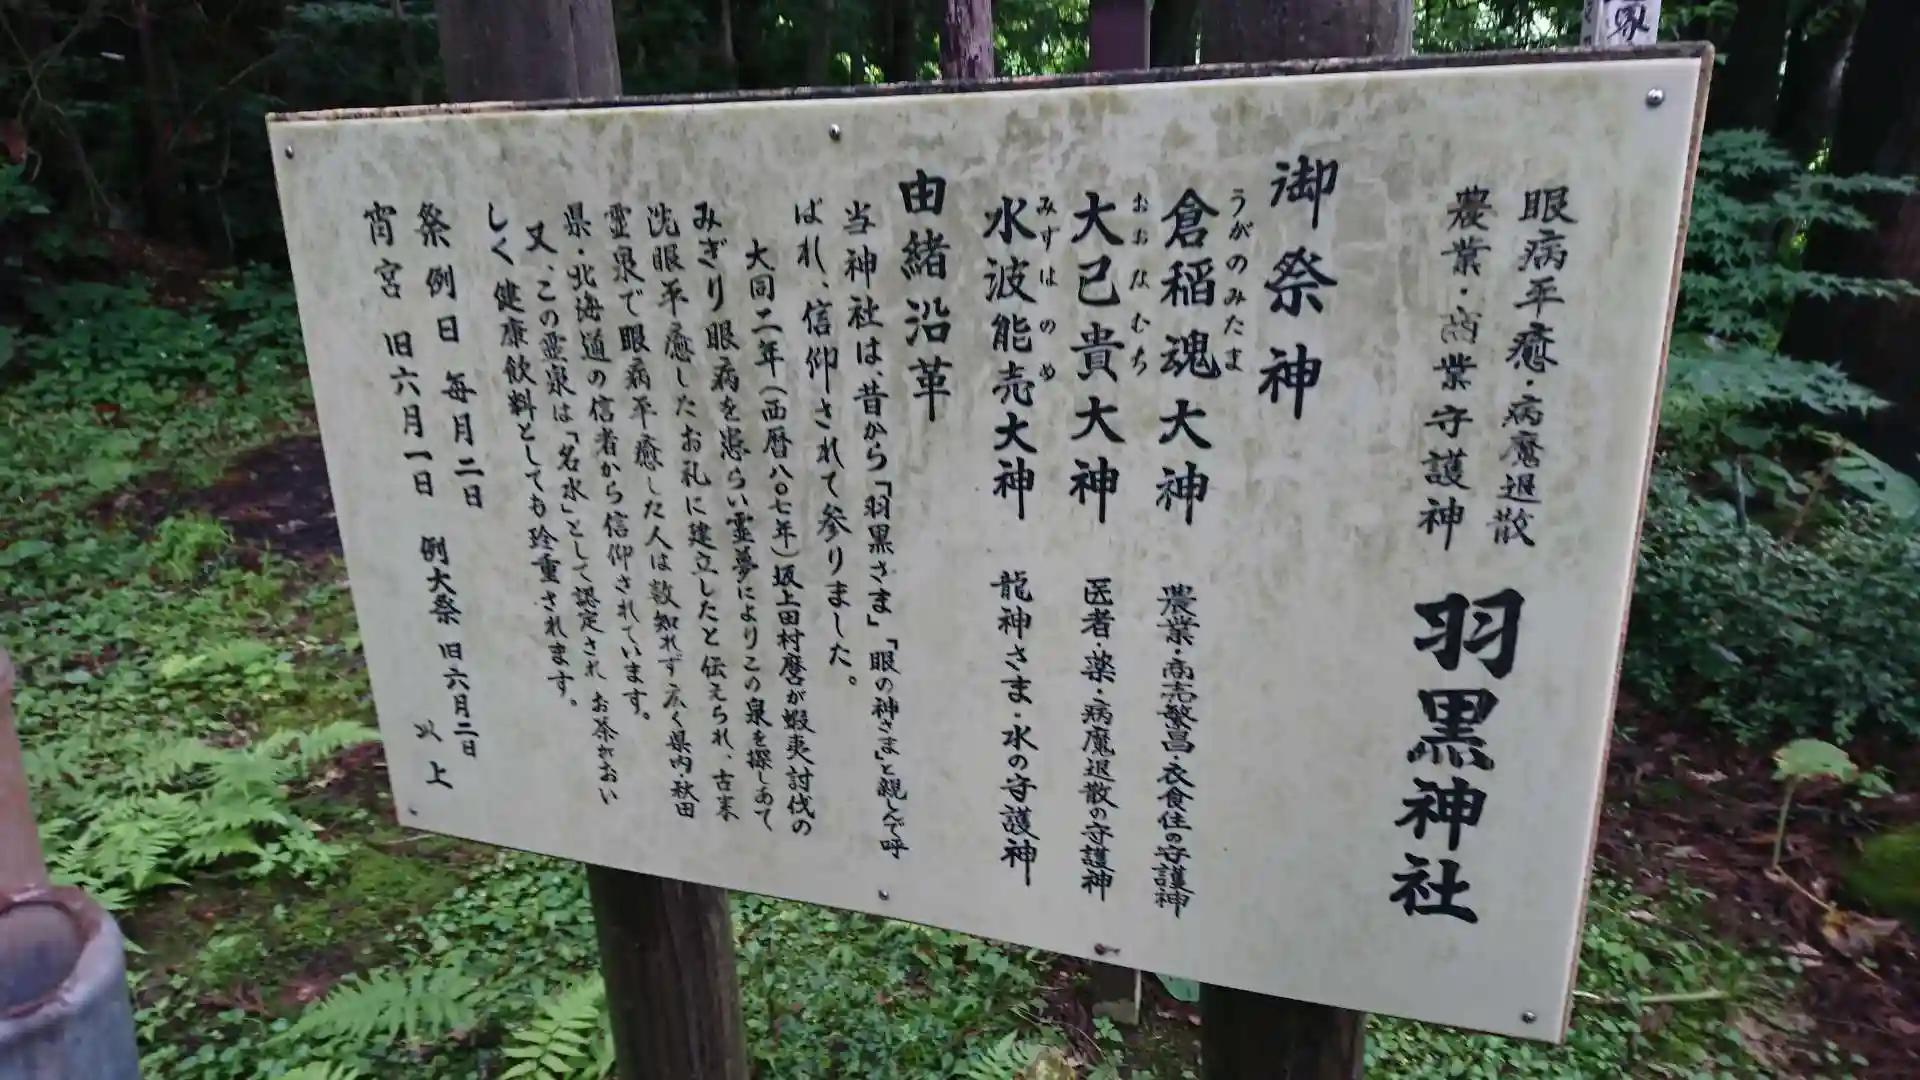 眼病平癒・病魔退散
農業・商業守護神
羽黒神社
御祭神
うがのみたま
倉稲魂大神 農業・商売繁昌・衣食住の守護神
おおなむち
大己貴大神 医者・薬・病魔退散の守護神
みずはのめ
水波能売大神 龍神さま・水の守護神
由緒沿革
当神社は、昔から「羽黒さま」「眼の神さま」と親しんで呼
ばれ、信仰されて参りました。
大同二年(西暦八〇七年)坂上田村麿が蝦夷討伐の
みぎり眼病を患らい霊夢によりこの泉を探しあて
洗眼平癒したお礼に建立したと伝えられ、古来
霊泉で眼病平癒した人は数知れず広く県内・秋田
県・北海道の信者から信仰されています。
又、この霊泉は「名水」として認定され お茶やおい
しく健康飲料としても珍重されます。
祭例日 毎月二日 例大祭 旧六月二日
宵宮 旧六月一日 以上